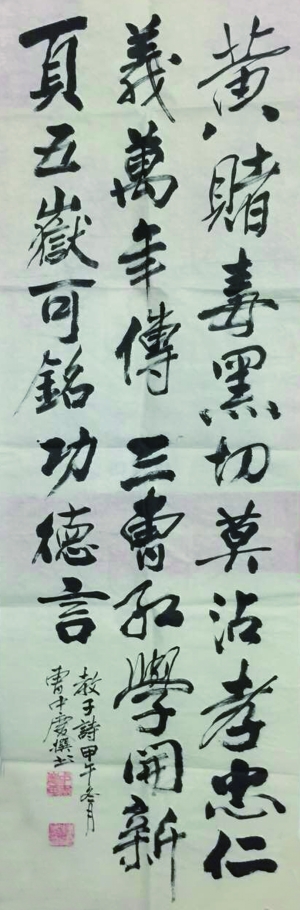 黄賭毒黑切莫沾孝忠仁
義萬年傳三曹紅學開新
頁五嶽可銘功德言
教子詩甲午冬月
曹中慶撰书